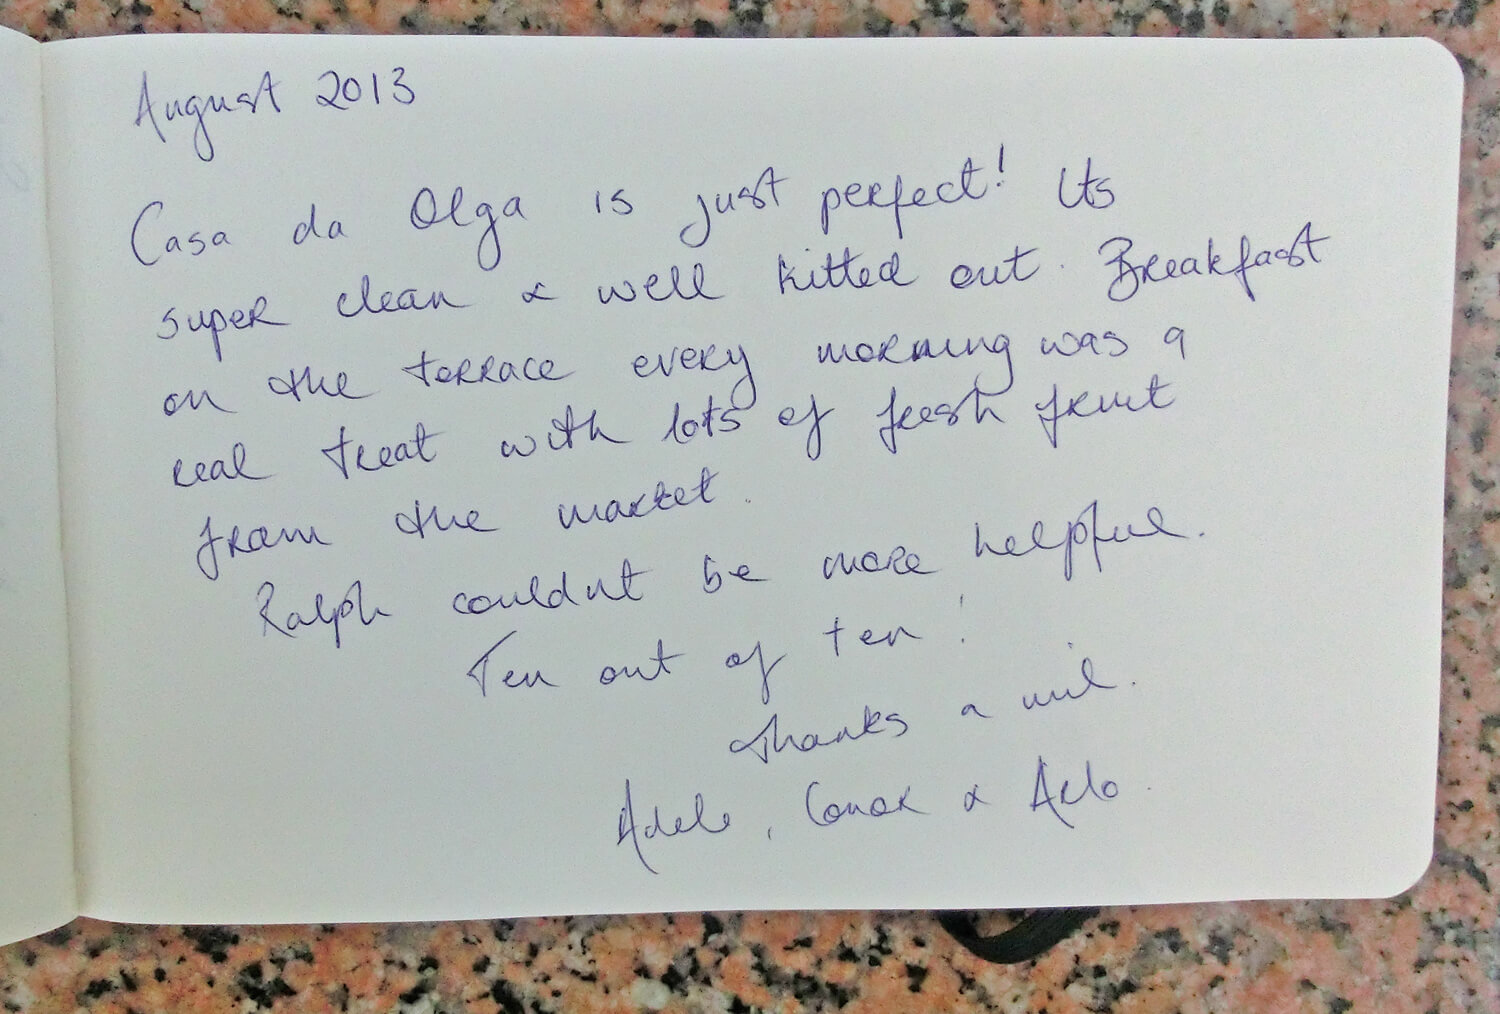 August 2013
Casa da Olga is just perfect! Its
super clean & well kitted out. Breakfast
on the terrace every morning was a
real treat with lots of fresh fruit
from the market.
Ralph couldnt be more helpful.
Ten out of ten!
Thanks a mil.
Adele, Conor & Arlo